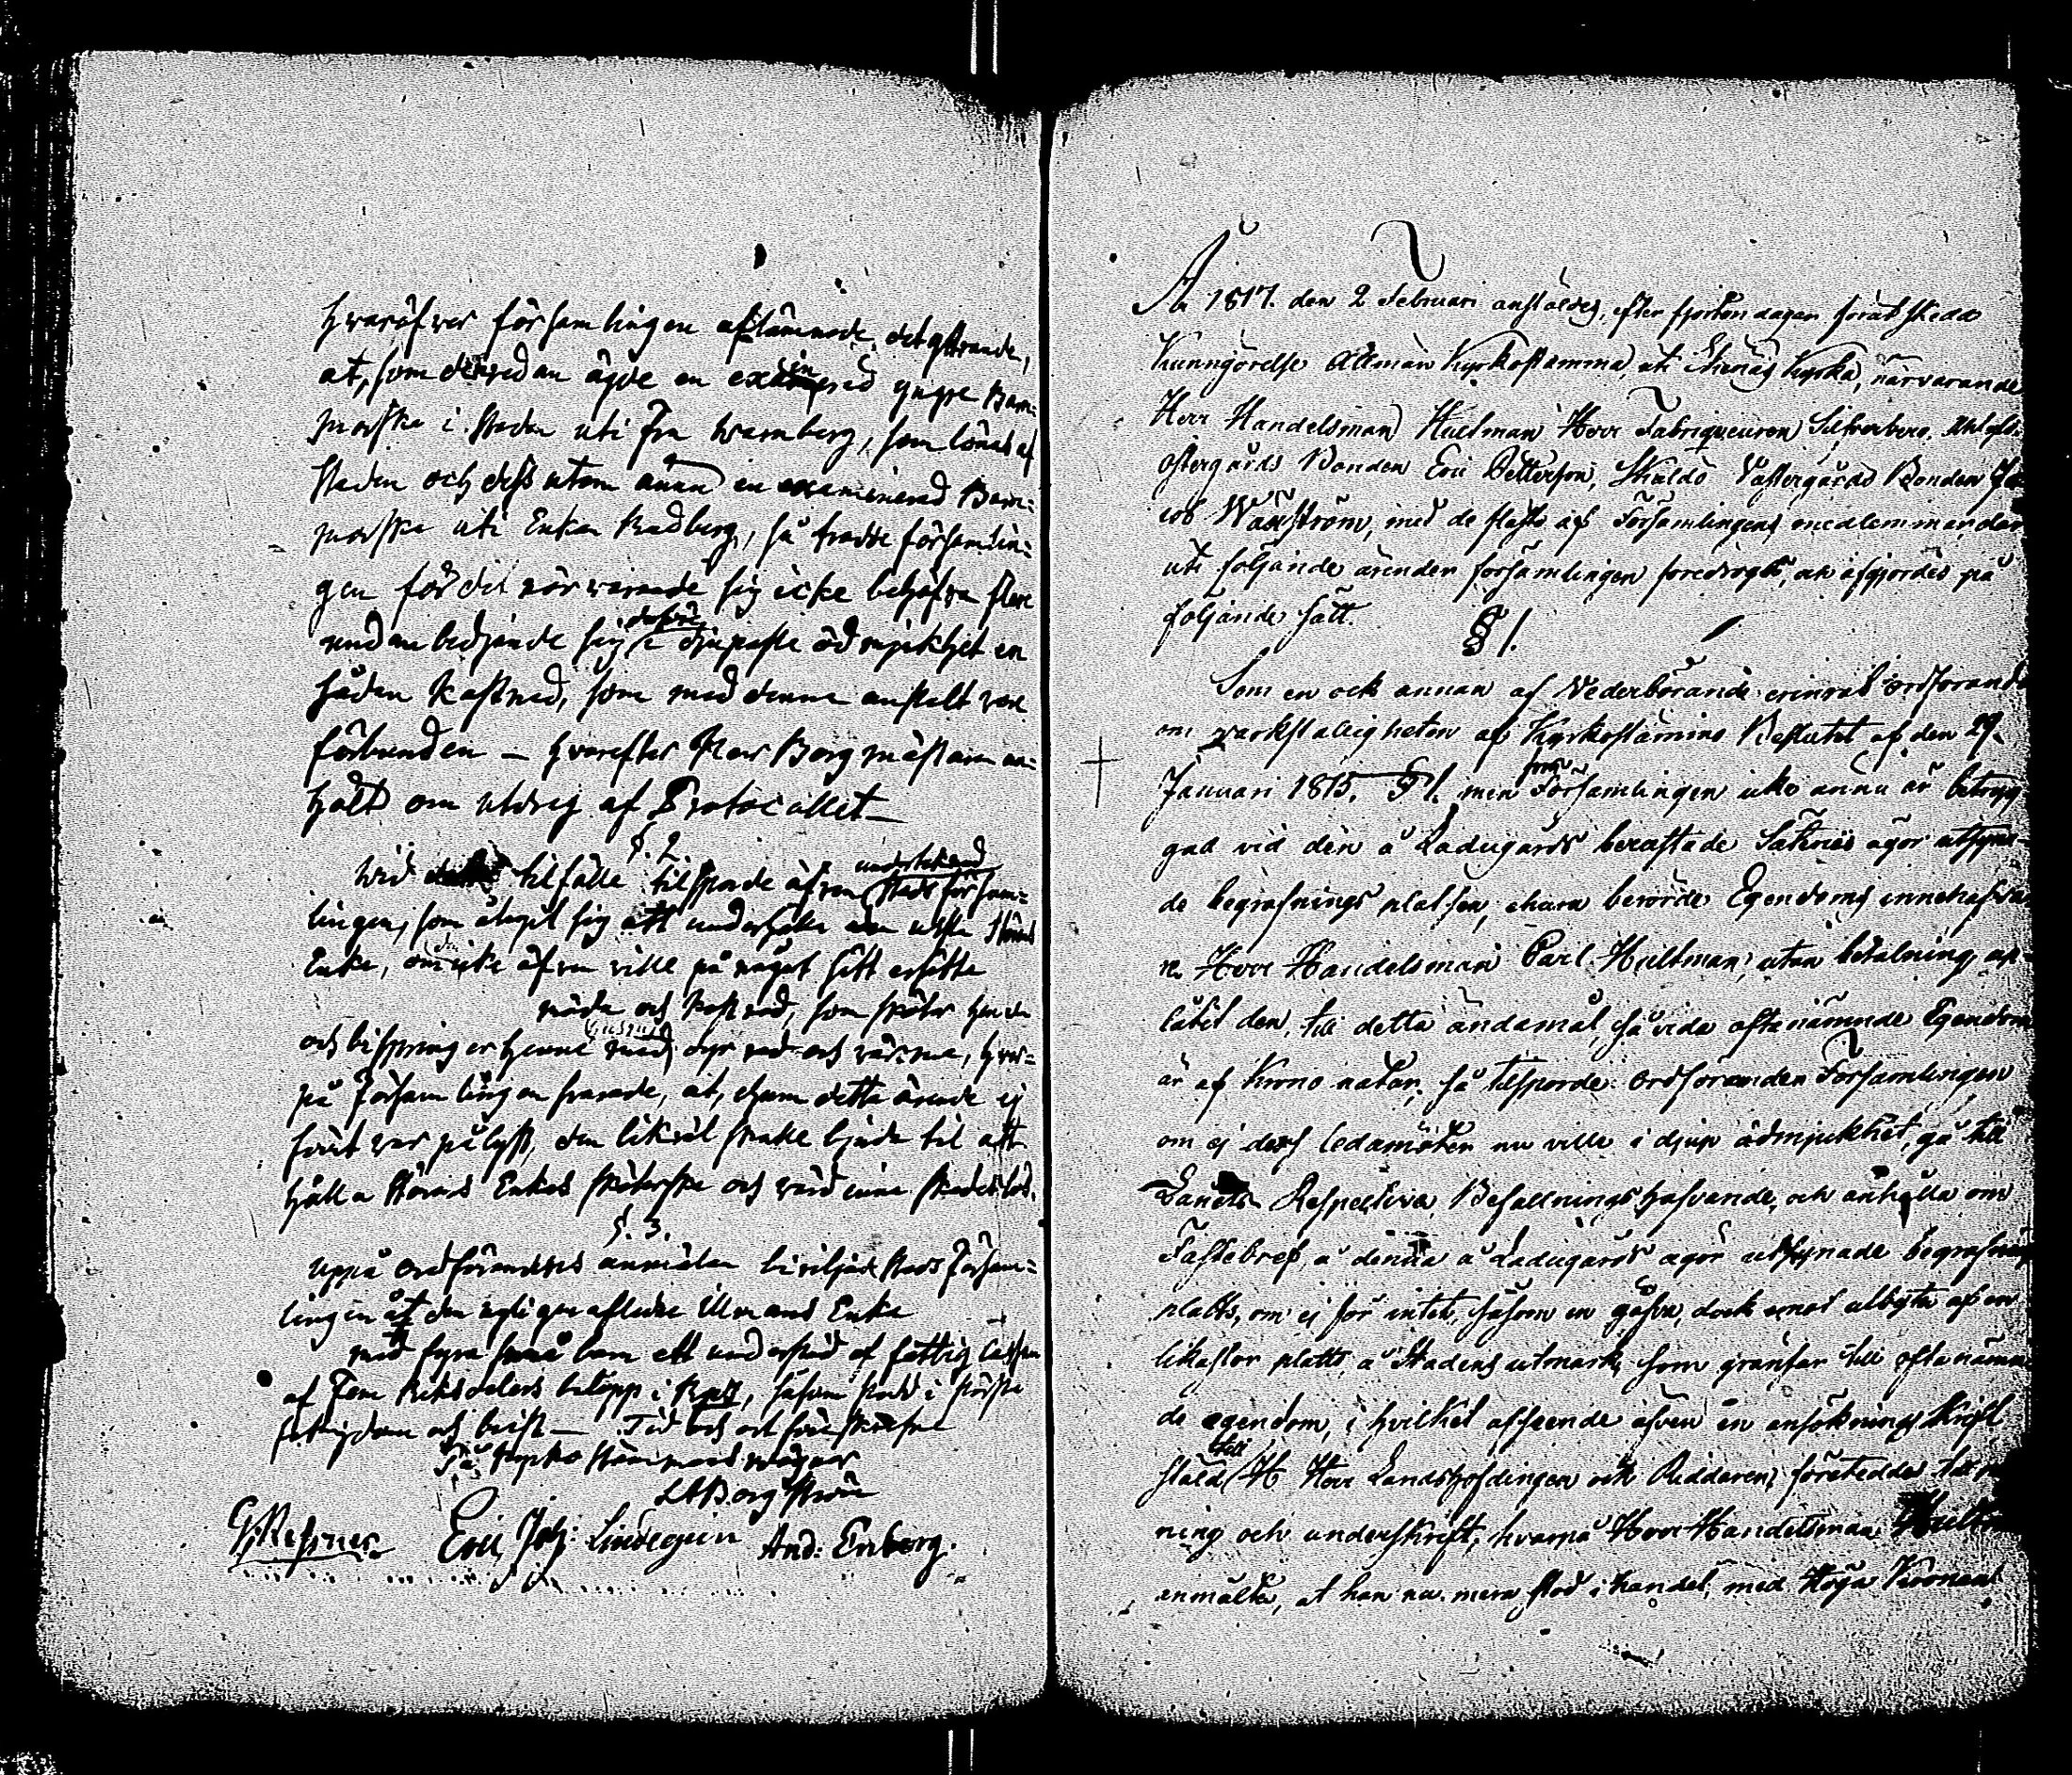 hvaröfver församlingen aflämnade det yttrande,
at, som den redan ägde en examinerad yngre Barn-
morska i staden uti Fru Warnberg, som lönas af
staden och dess utom ännu en examinerad Barn-
morska uti Enkan Radberg, så trodde församlin-
gen för det närvarande sig icke behöfva flere
undanbedjande sig derföre i djupaste ödmjukhet en
sådan kostnad, som med denne anstalt vore
förbunden – hvarefter Herr Borgmästaren an-
höll om utdrag af Protocollet –
§. 2
Wid tilfälle tilsporde äfven Stads försam-
lingen, som åtagit sig att underhålla
Enka, om icke äfven ville på något sätt ersätta
möda och kostnad, som sköter henne
och bispringer henne med husrum dyr ved och värme, hvar-
på Församlingen svarade, at, ehuru detta ärende ej
förut var pålyst, den likväl skulle bjuda til att
hålla Enkas sköterska och värdinna skadeslös.
§. 3.
Uppå Ordförandens anmälan beviljade Stads Försam-
lingen åt den nyligen aflidne Ullmans Enka
med fyra små barn ett understöd af fattig cassan
af Fem Riksdalers belopp i , såsom stadd i största
fattigdom och brist – Tid och ort som förskrifne
På Kyrko Stämmans vägnar
Borgström
Eric Joh: Lindeqvin And: Enberg.
År 1817. den 2 Februari anstäldes, efter fjorton dagar förut skedd
Kunngörelse Allmän Kyrkostämma, uti Ekenäs Kyrka, närvarande
Herr Handelsman Hultman Herr Fabriqueuren Silfverberg,
östergårds Bonden Eric Petterson, Skåldö Västergårds Bonden Ja-
cob Waxström, med de fläste af Församlingens medlemmar, der
uti följande ärenden församlingen föredrogos, och afgjordes på
följande sätt.
§ 1.
Som en och annan af Vederbörande erinrat ordförande
om värkställigheten af Kyrkostämmo Beslutet af den 29.
Januari 1815. § 1. men som Församlingen icke ännu är betryg-
gad vid den å Ladugårds berustade Säteries ägor utsyna-
de begrafnings platsen, ehuru berörde Egendoms innehafva-
re Herr Handelsman Carl Hultman, utan betalning up-
låtit den, till detta ändamål, såvida oftanämnde Egendom
är af Krono natur, så tilsporde ordföranden Församlingen
om ej dess ledamöter nu ville i djup ödmjukhet, gå till
Landets Respective Befallningshafvande, och anhålla om
Fastebref, å denna å Ladugårds ägor utsynade begrafnings
platts, om ej för intet, såsom en gåfva, dock emot utbyte af en
lika stor platts å Stadens utmark, som gränsar till oftanämn-
de egendom, i hvilket afseende äfven en ansöknings skrift
stäld till H Herr Landshöfdingen och Riddaren, företeddes till
ning och underskrift, hvarpå Herr Handelsman Hult-
anmälte, at han nu mera stod i handel med Höga Kronan